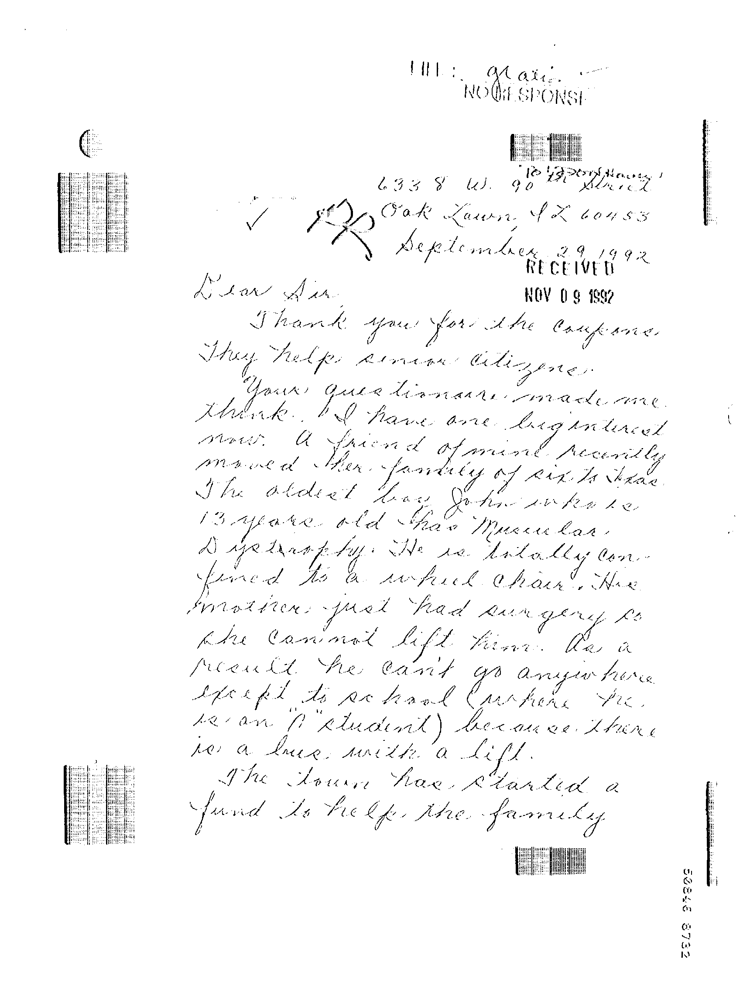 FILE: gratis
NO RESPONSE
6338 W. 90th Street
Oak Lawn, IL 60453
September 29, 1992
RECEIVED
NOV 09 1992
Dear Sir,
Thank you for the coupons.
They help senior citizens.
Your questionaire made me
think. I have one big interest
now. A friend of mine recently
moved her family of six to Texas.
The oldest boy John who is
13 years old has Muscular
Dystrophy. He is totally con-
fined to a wheel chair. His
mother just had surgery so
she cannot lift him. As a
result he can't go anywhere
except to school (where he
is an "A" student) because there
is a bus with a lift.
The town has started a
fund to help the family
50846 8732